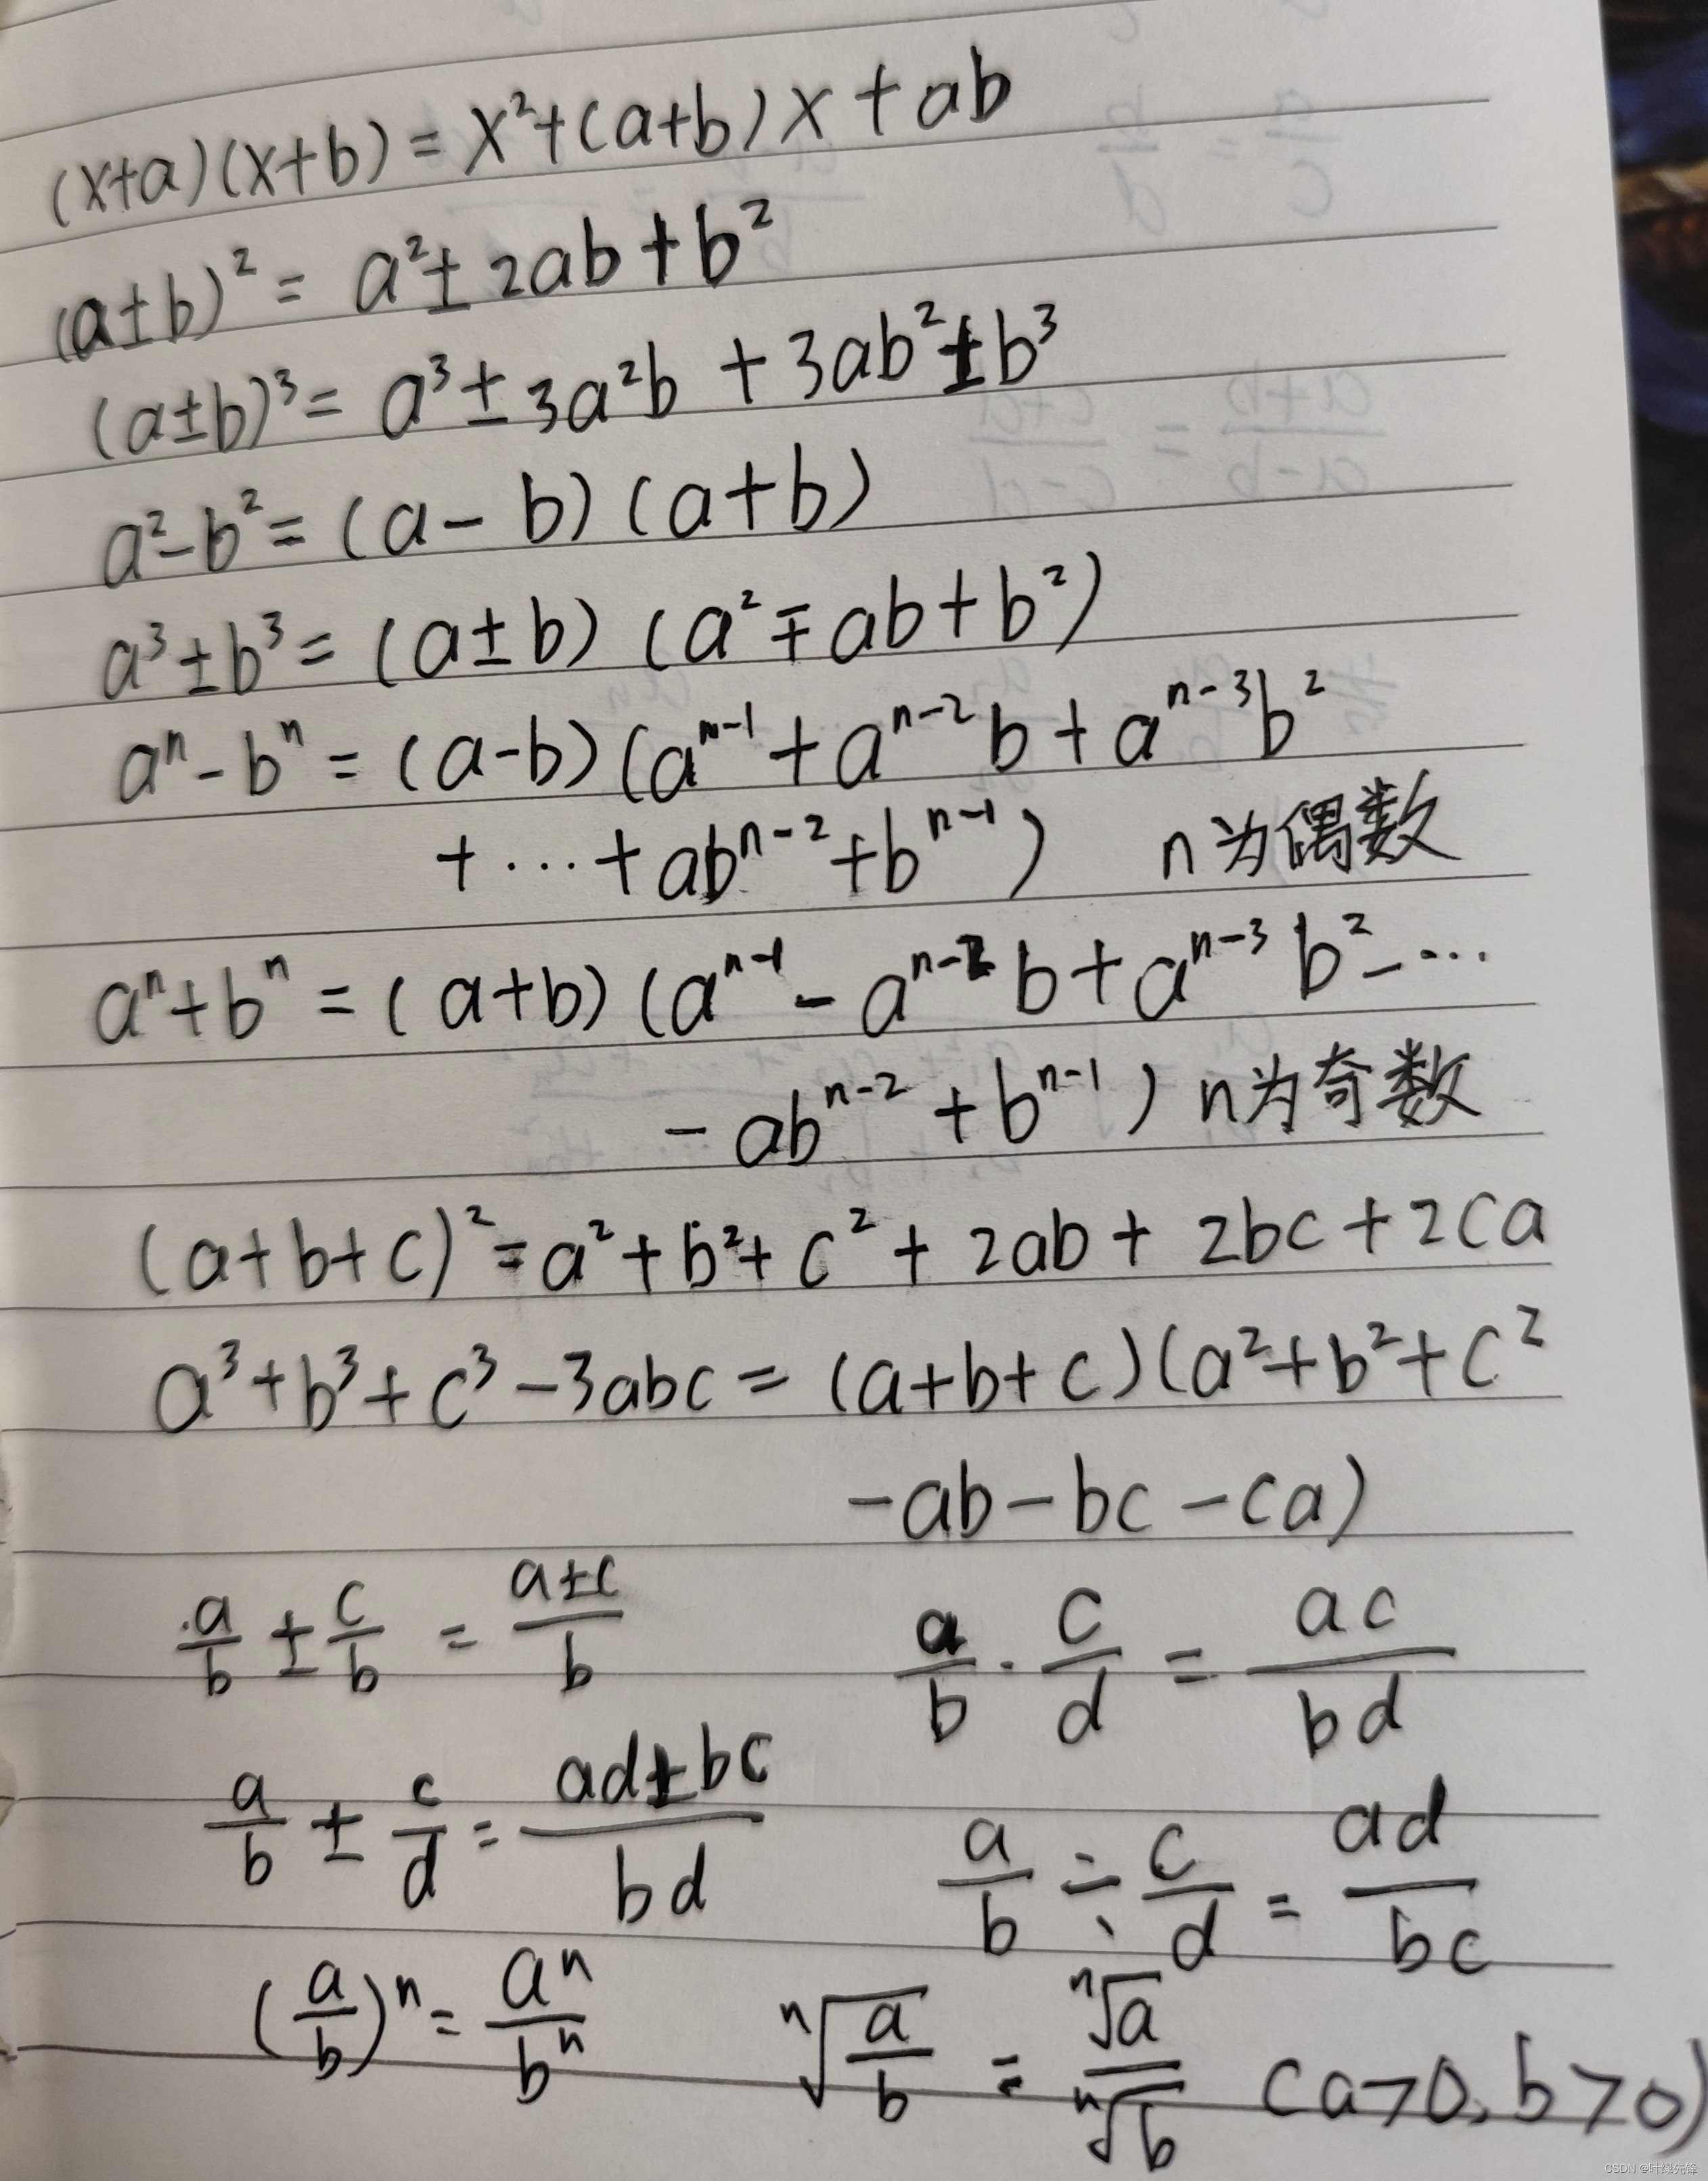 (x+a)(x+b) = x²+(a+b)x+ab
(a±b)² = a²±2ab+b²
(a±b)³ = a³±3a²b+3ab²±b³
a²-b² = (a-b)(a+b)
a³±b³ = (a±b)(a²∓ab+b²)
aⁿ-bⁿ = (a-b)(aⁿ⁻¹+aⁿ⁻²b+aⁿ⁻³b²
+…+abⁿ⁻²+bⁿ⁻¹) n为偶数
aⁿ+bⁿ = (a+b)(aⁿ⁻¹-aⁿ⁻²b+aⁿ⁻³b²-…
-abⁿ⁻²+bⁿ⁻¹) n为奇数
(a+b+c)² = a²+b²+c²+2ab+2bc+2ca
a³+b³+c³-3abc = (a+b+c)(a²+b²+c²
-ab-bc-ca)
a/b ± c/b = (a±c)/b    a/b · c/d = ac/bd
a/b ± c/d = (ad±bc)/bd    a/b ÷ c/d = ad/bc
(a/b)ⁿ = aⁿ/bⁿ    ⁿ√(a/b) = ⁿ√a/ⁿ√b (a>0, b>0)
CSDN @叶绿先锋